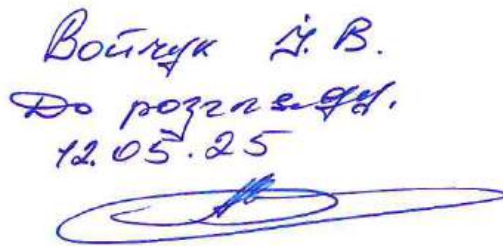 Войчук І. В.
До розгляду.
12.05.25